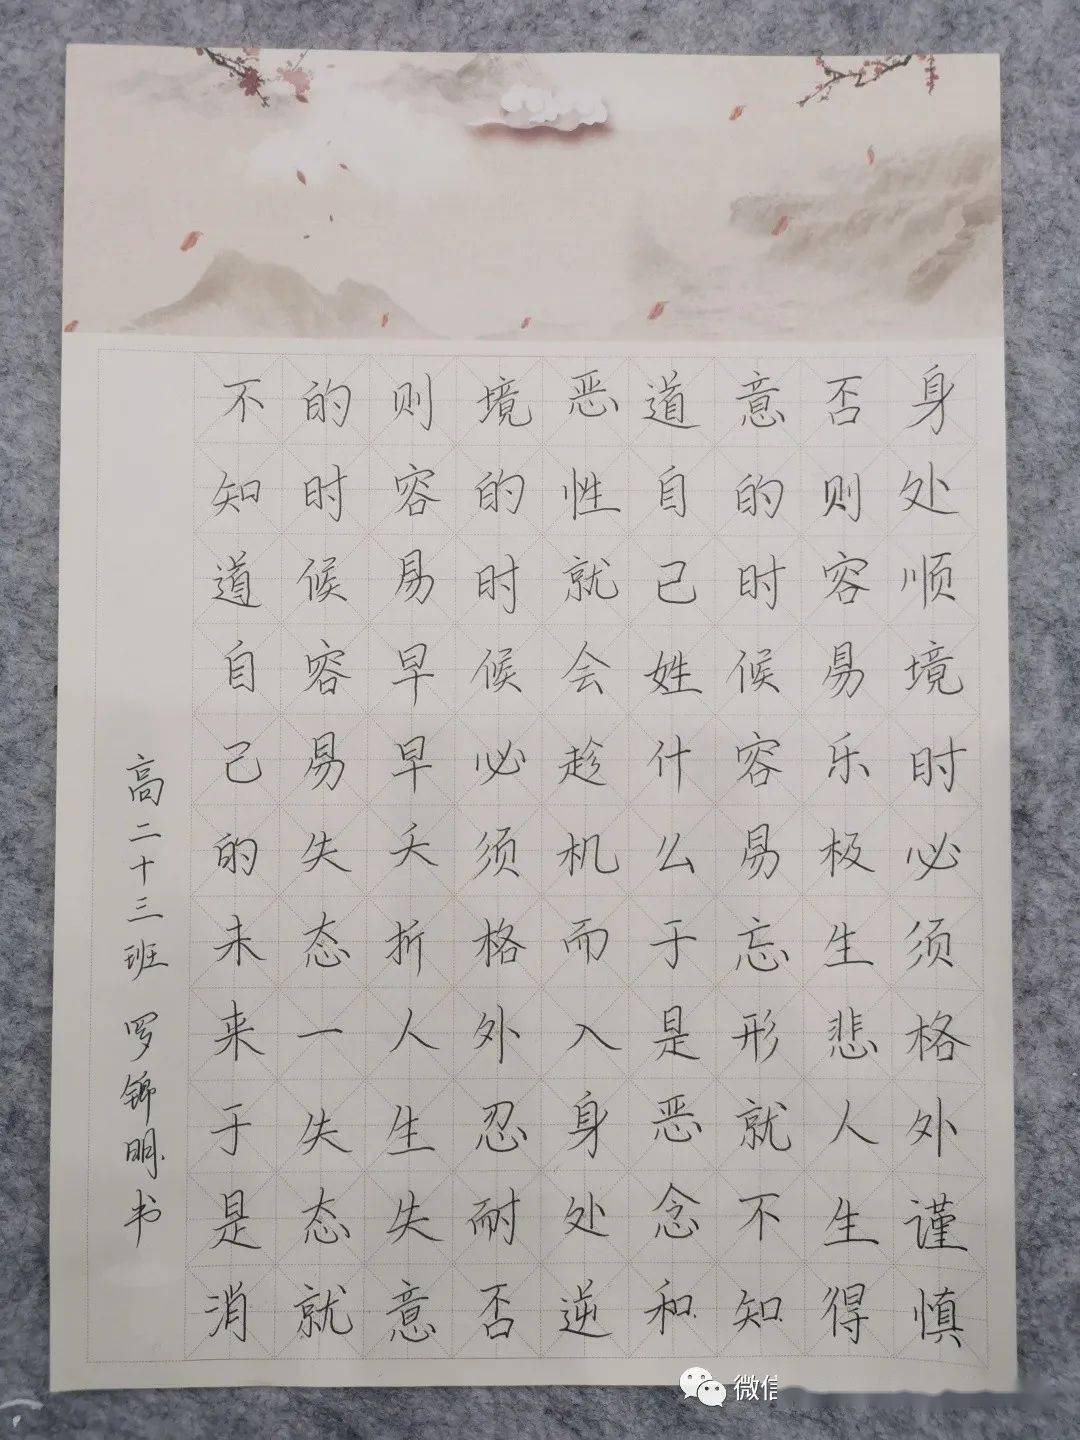 身处顺境时必须格外谨慎
否则容易乐极生悲人生得
意的时候容易忘形就不知
道自己姓什么于是恶念和
恶性就会趁机而入身处逆
境的时候必须格外忍耐否
则容易早早夭折人生失意
的时候容易失态一失态就
不知道自己的未来于是消
高二十三班 罗锦明书
微信